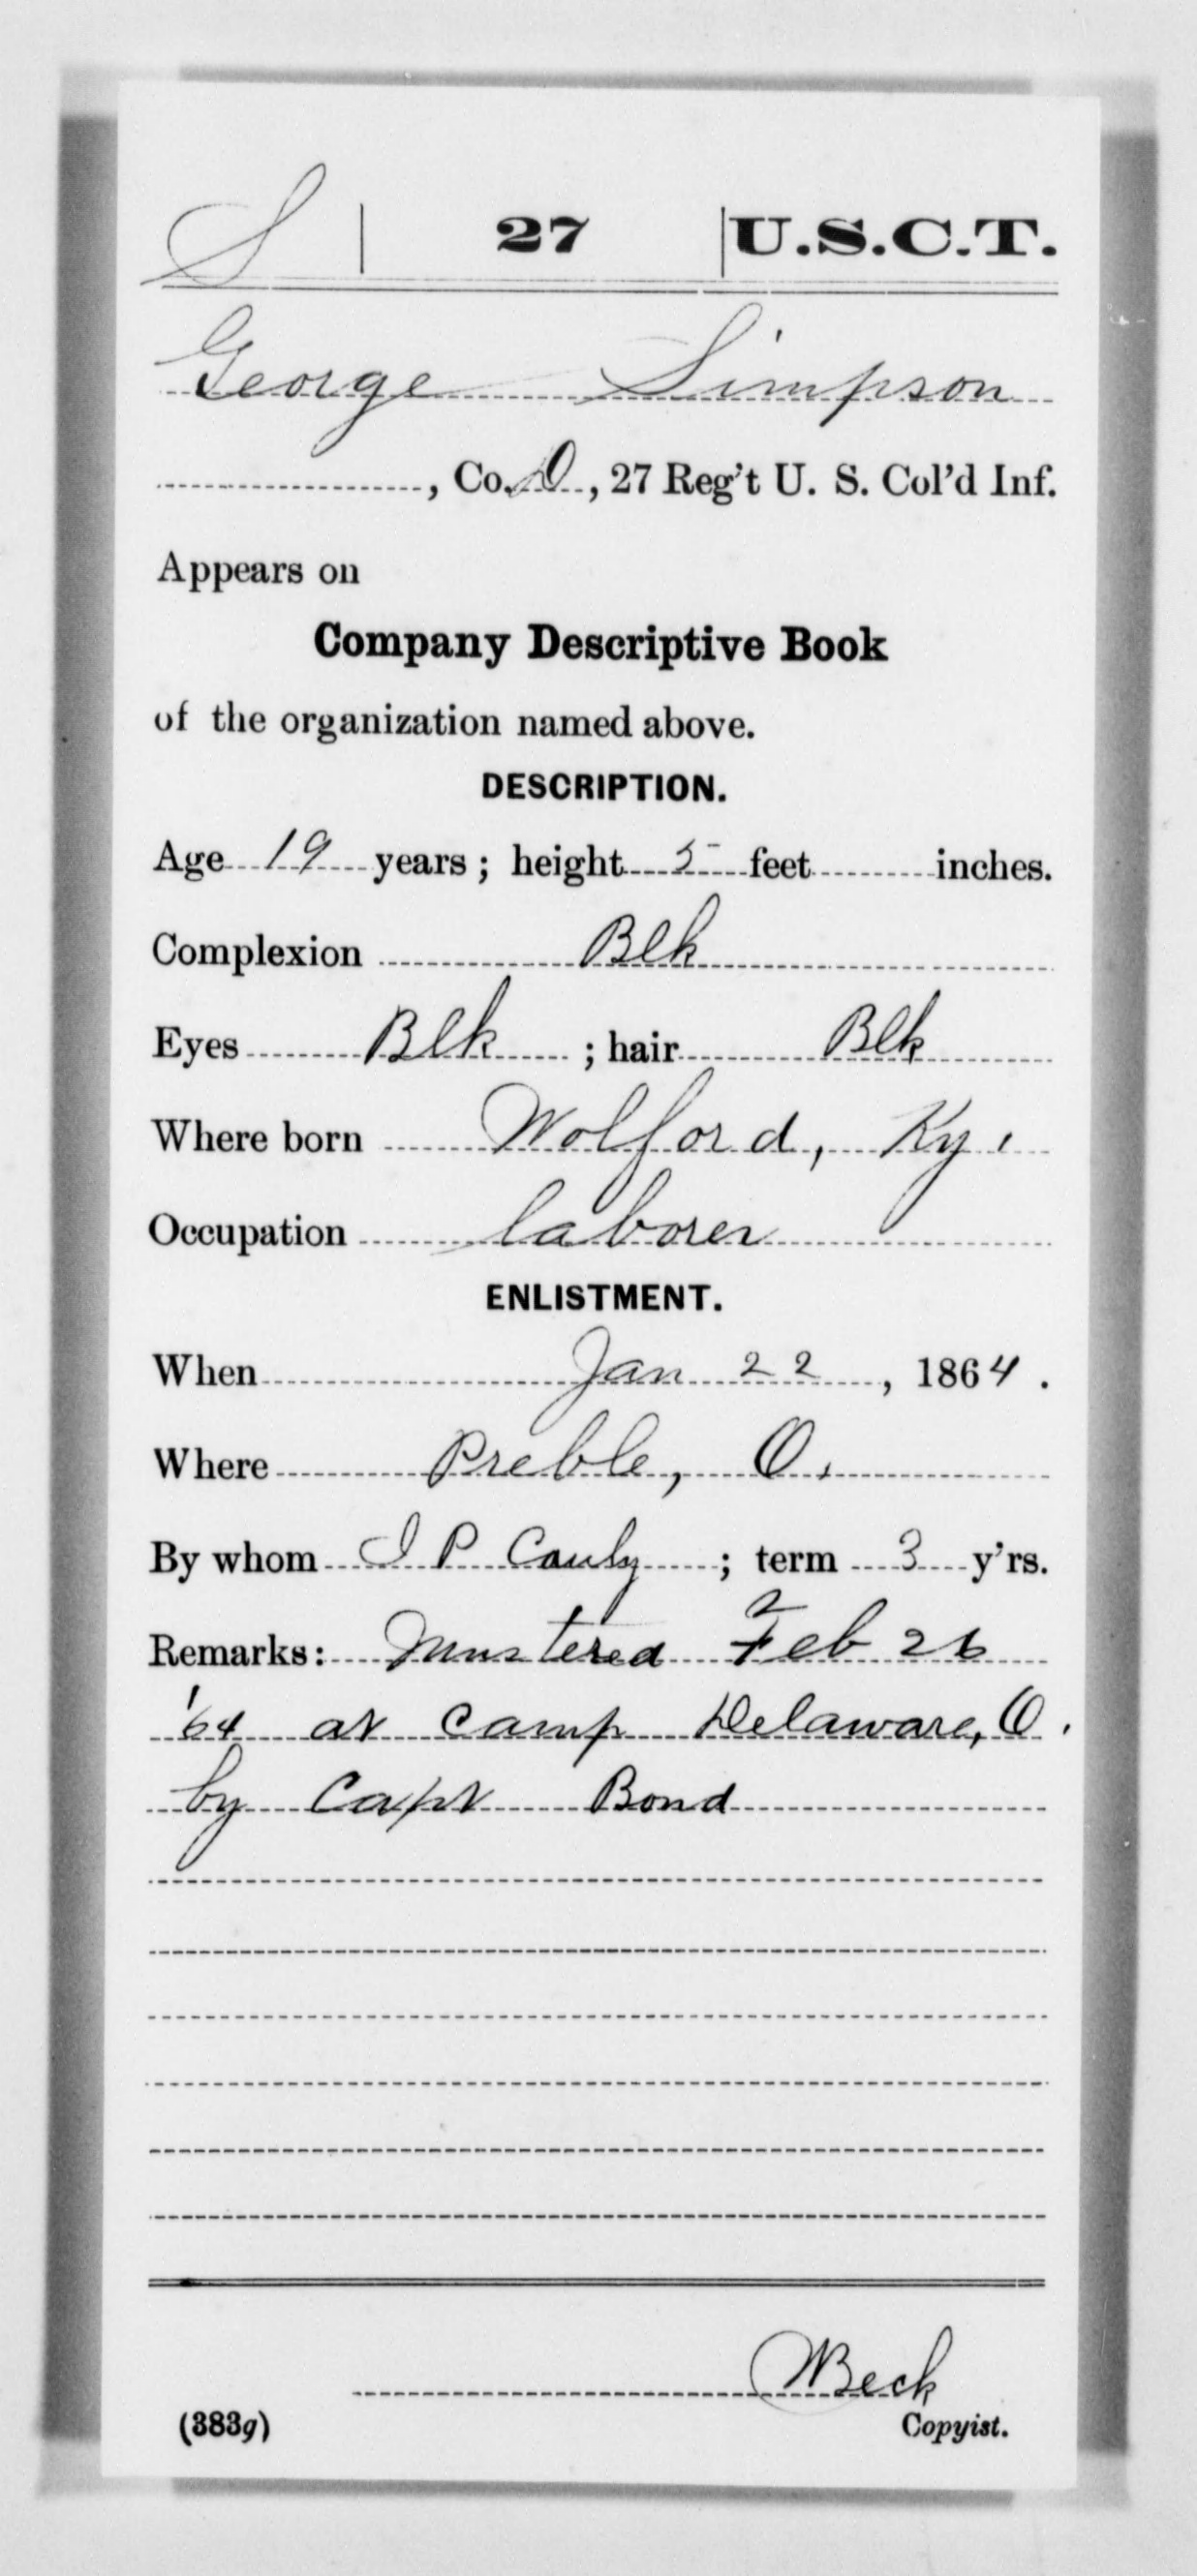 S | 27 | U.S.C.T.
George Simpson
, Co. D, 27 Reg't U. S. Col'd Inf.
Appears on
Company Descriptive Book
of the organization named above.
DESCRIPTION.
Age 19 years; height 5 feet inches.
Complexion Blk
Eyes Blk; hair Blk
Where born Wolford, Ky.
Occupation laborer
ENLISTMENT.
When Jan 22, 1864.
Where Preble, O.
By whom J P; term 3 y'rs.
Remarks: Mustered Feb 26
'64 at Camp Delaware, O.
by Capt Bond
Beck
(383g) Copyist.